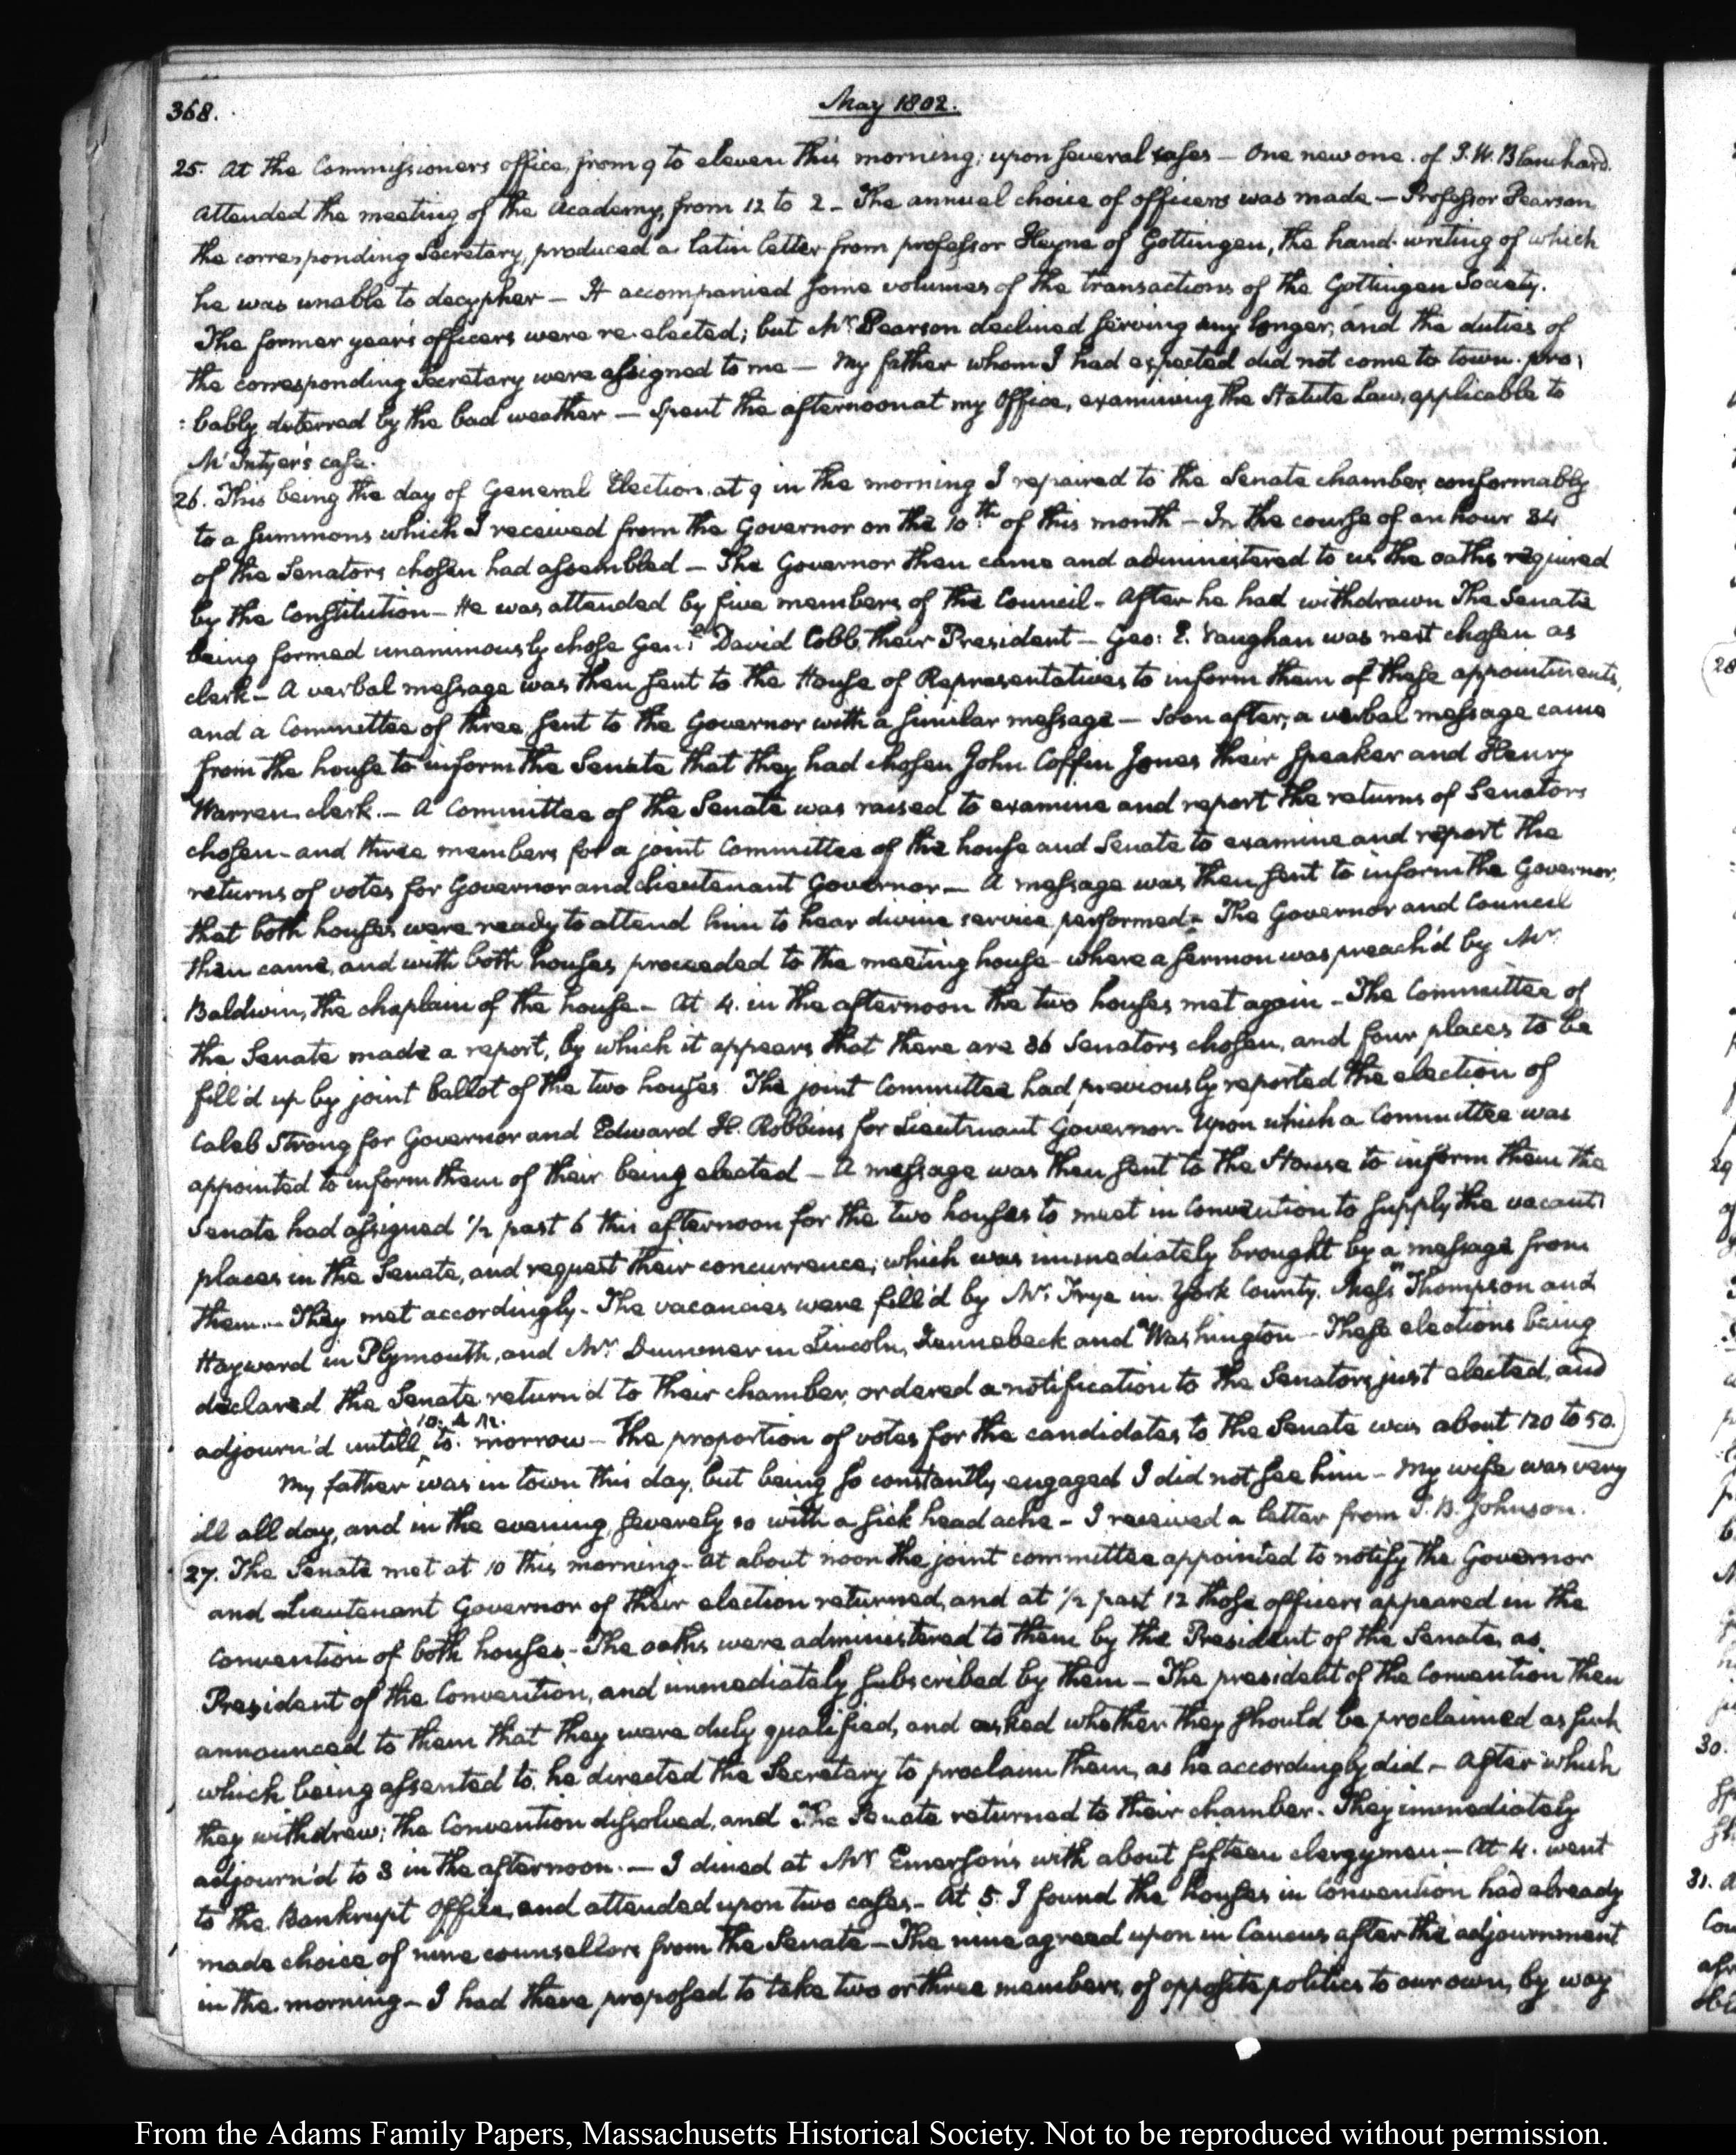 368.
May 1802.
25. At the Commissioners office, from 9 to eleven this morning; upon several cases — One new one. of J. W. Blanchard.
Attended the meeting of the Academy, from 12 to 2 - The annual choice of officers was made — Professor Pearson
the corresponding Secretary, produced a latin letter from professor Heyne of Gottingen, the hand-writing of which
he was unable to decypher — It accompanied some volumes of the transactions of the Gottingen Society.
The former year's officers were re-elected; but Mr. Pearson declined serving any longer, and the duties of
the corresponding Secretary were assigned to me — My father whom I had expected did not come to town. pro:
:bably deterred by the bad weather — Spent the afternoon at my Office, examining the Statute Law, applicable to
McIntyer's case.
26. This being the day of General Election, at 9 in the morning I repaired to the Senate chamber, conformably
to a summons which I received from the Governor on the 10th of this month — In the course of an hour 34
of the Senators chosen had assembled — The Governor then came and administered to us the oaths required
by the Constitution — He was attended by five members of the Council - After he had withdrawn The Senate
being formed unanimously chose Genl. David Cobb, their President — Geo: E. Vaughan was next chosen as
clerk — A verbal message was then sent to the House of Representatives to inform them of these appointments,
and a Committee of three sent to the Governor with a similar message — Soon after, a verbal message came
from the house to inform the Senate that they had chosen John Coffin Jones their Speaker and Henry
Warren clerk. — A Committee of the Senate was raised to examine and report the returns of Senators
chosen - and three members for a joint Committee of the house and Senate to examine and report the
returns of votes for Governor and Lieutenant Governor — A message was then sent to inform the Governor,
that both houses were ready to attend him to hear divine service performed - The Governor and Council
then came, and with both houses, proceeded to the meeting house where a sermon was preach'd by Mr.
Baldwin, the chaplain of the house - At 4. in the afternoon the two houses met again - The Committee of
the Senate made a report, by which it appears that there are 36 Senators chosen, and four places to be
fill'd up by joint ballot of the two houses. The joint Committee had previously reported the election of
Caleb Strong for Governor and Edward H. Robbins for Lieutenant Governor - Upon which a Committee was
appointed to inform them of their being elected — A message was then sent to the House to inform them the
Senate had assigned 1/2 past 6 this afternoon for the two houses to meet in Convention to supply the vacant
places in the Senate, and request their concurrence; which was immediately brought by a message from
them. — They met accordingly - The vacancies were fill'd by Mr. Frye in York County. Messrs Thompson and
Hayward in Plymouth, and Mr. Dummer in Lincoln, Kennebeck and Washington — These elections being
declared the Senate return'd to their chamber, ordered a notification to the Senators just elected, and
adjourn'd untill 10. A.M. to-morrow — The proportion of votes for the candidates to the Senate was about 120 to 50.
My father was in town this day, but being so constantly engaged I did not see him — My wife was very
ill all day, and in the evening severely so with a sick head ache - I received a letter from J. B. Johnson.
27. The Senate met at 10 this morning - At about noon the joint committee appointed to notify the Governor
and Lieutenant Governor of their election returned, and at 1/2 past 12 those officers appeared in the
Convention of both houses - The oaths were administered to them by the President of the Senate, as
President of the Convention, and immediately subscribed by them — The president of the Convention then
announced to them that they were duly qualified, and asked whether they should be proclaimed as such
which being assented to, he directed the Secretary to proclaim them, as he accordingly did — After which
they withdrew; the Convention dissolved, and The Senate returned to their chamber. They immediately
adjourn'd to 3 in the afternoon. — I dined at Mr Emerson's with about fifteen clergymen — At 4. went
to the Bankrupt Office, and attended upon two cases - At 5. I found the houses in Convention had already
made choice of nine counsellors from the Senate — The nine agreed upon in Caucus after the adjournment
in the morning - I had there proposed to take two or three members, of opposite politics to our own, by way
From the Adams Family Papers, Massachusetts Historical Society. Not to be reproduced without permission.